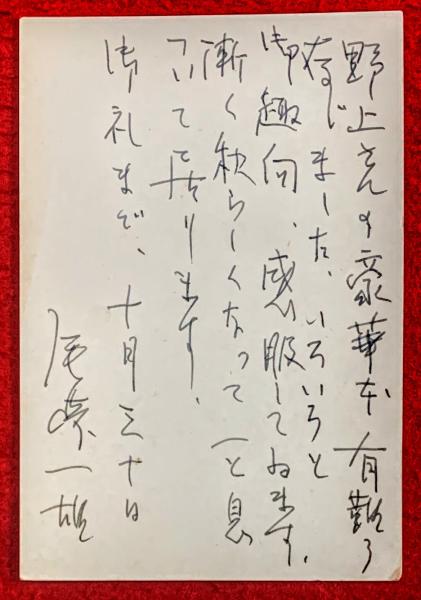 野上さんの豪華本 有難う
存じました、いろいろと
御趣向、感服してゐます、
漸く秋らしくなって一と息
ついて居ります、
御礼まで、十月三十日
尾崎一雄